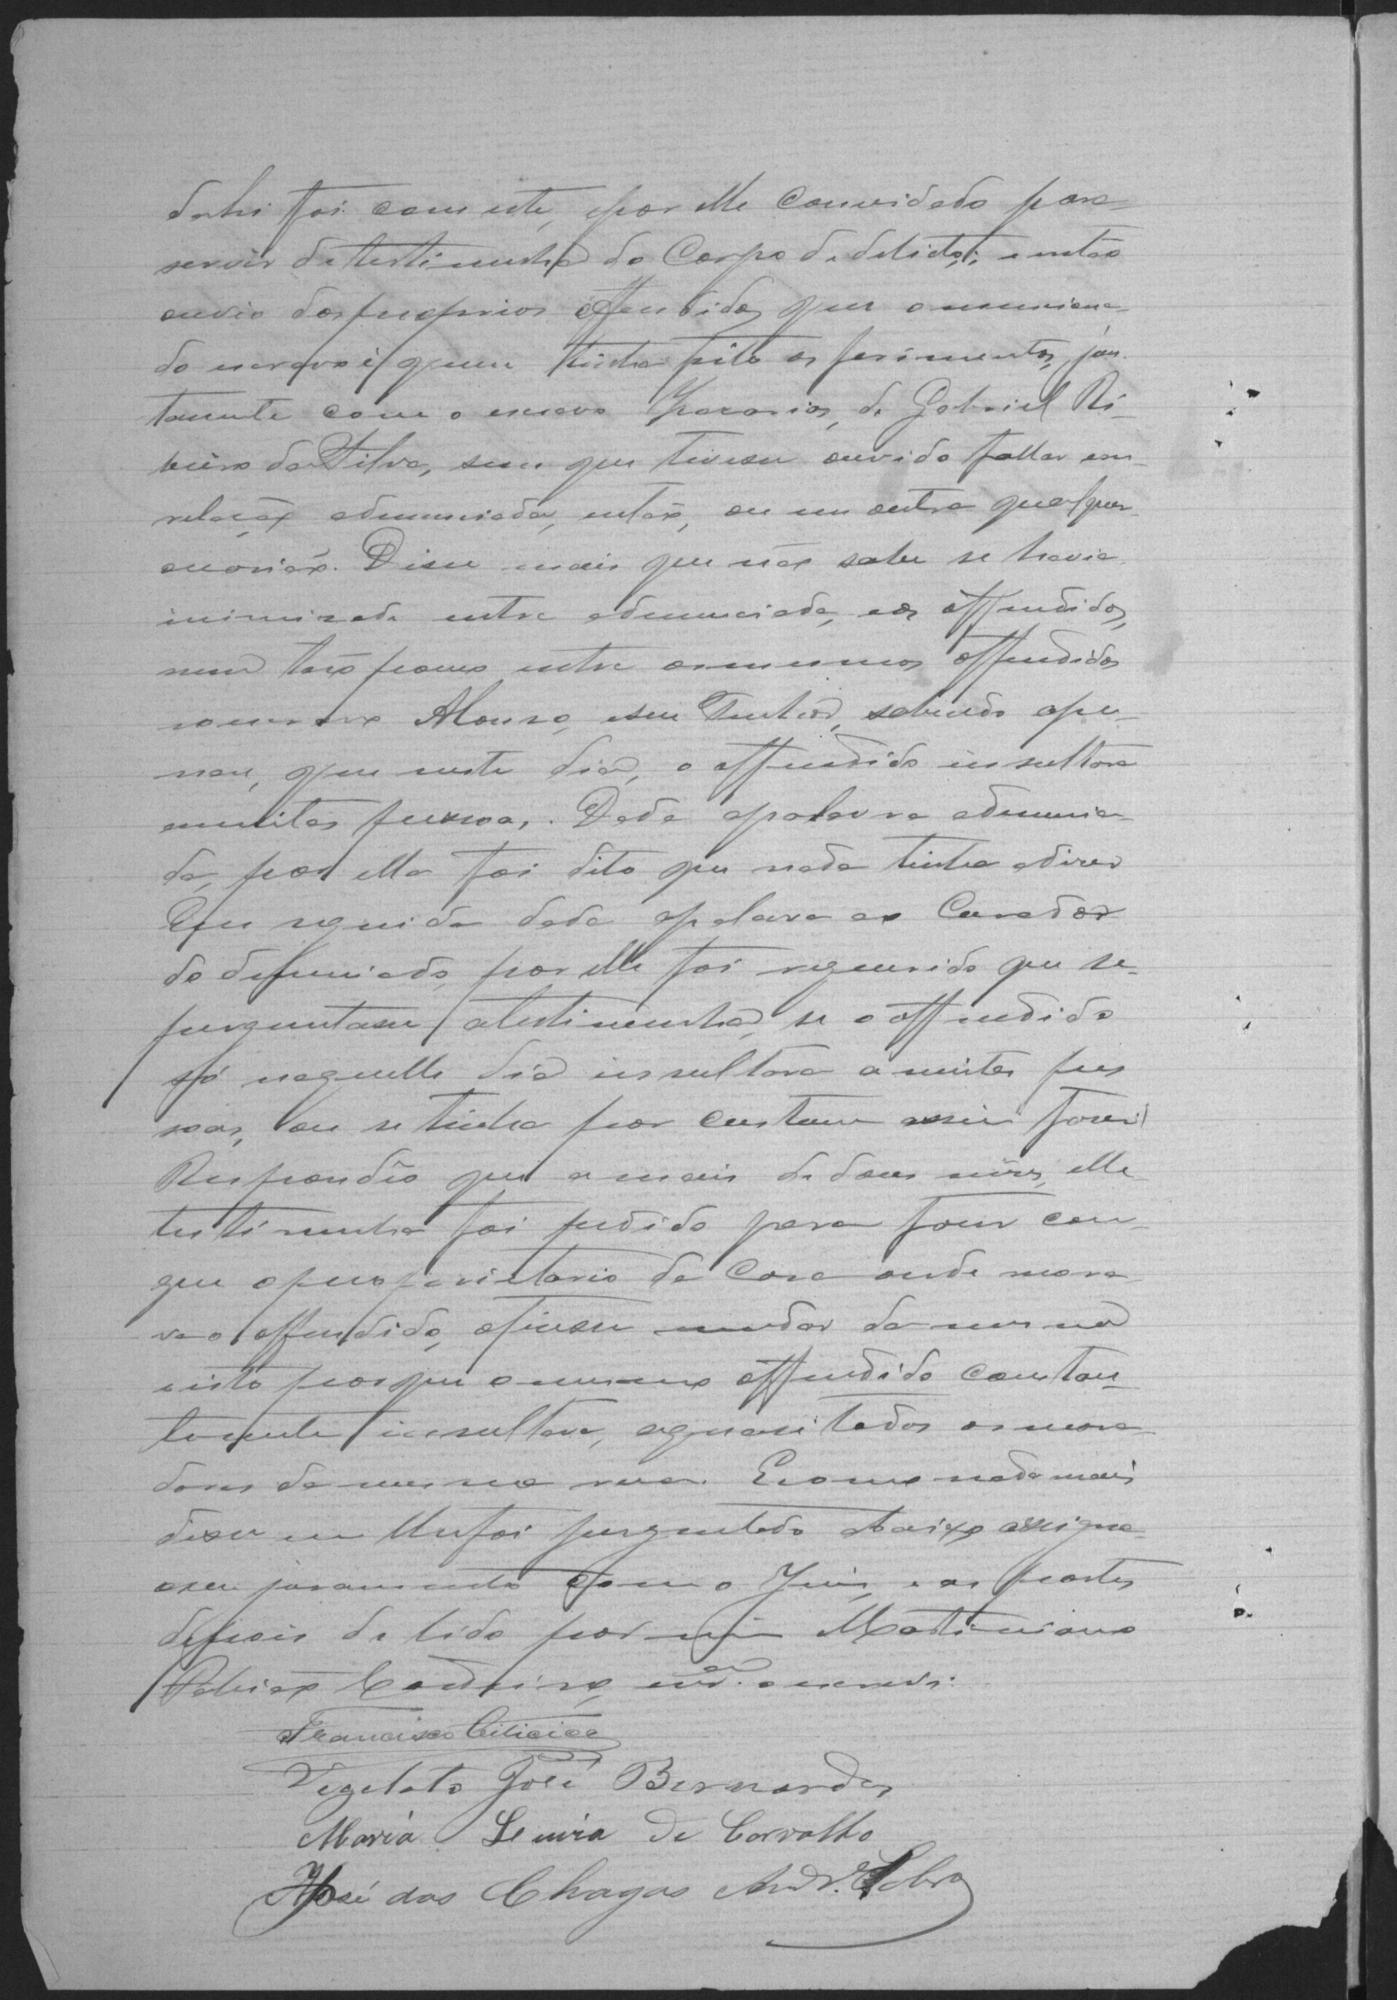 dahi foi com este, e por elle convidado para
servir de testimunha do Corpo de delicto; e então
ouvio dos proprios offendidos que o menciona-
do escravo é quem tinha feito os ferimentos, jun-
tamente com o escravo de Gabriel Ri-
beiro da Silva, sem que tivesse ouvido fallar em
relação a denunciada, então, ou em outra qualquer
occasião. Disse mais que não sabe se havia
inimisade entre a denunciada, e os offendidos,
nem tão pouco entre os mesmos offendidos
e o escravo Afonso, e seu Senhor, sabendo ape-
nas, que neste dia, o offendido insultara
a muitas pessoas. Dada a palavra a denuncia-
da, por ella foi dito que nada tinha a dizer
Em seguida dada a palavra ao Curador
do denunciado, por elle foi requerido que se
perguntasse a testimunha, se o offendido
só naquelle dia insultara a muitas pes
soas, ou se tinha por custume assim fazer
Respondêo que a mais de dous mêses, elle
testimunha foi pedido para fazer com
que o proprietario da Casa onde mora-
va o offendido, o fizesse mudar da mesma
isto porque o mesmo offendido constan-
temente insultava, a quasi todos os mora-
dores da mesma rua. E como nada mais
disse nem lhe foi perguntado abaixo assigna
o seu juramento com o Juiz, e as partes
depois de lido por mim Martiniano
Cordeiro, escr.am o escrevi.
Francisco
José Bernardes
Maria de Carvalho
José das Chagas Andr.e